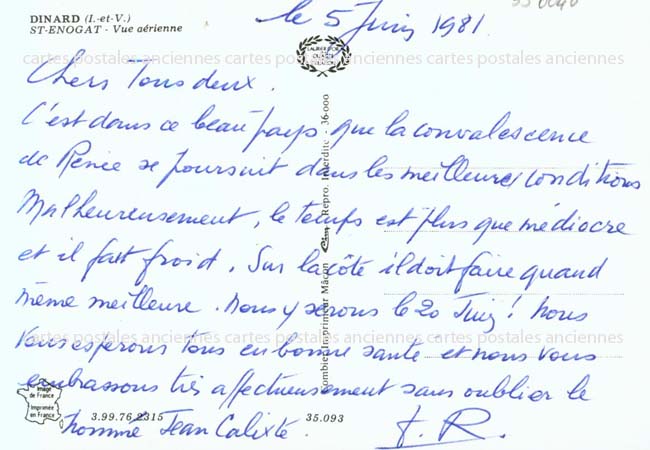 DINARD (I.-et-V.)
ST-ENOGAT - Vue aérienne
le 5 Juin 1981
cartes postales anciennes cartes postales anciennes cartes postales anciennes
Chers Tous deux.
C'est dans ce beau pays que la convalescence
de Renée se poursuit dans les meilleures conditions
Malheureusement, le temps est plus que médiocre
et il fait froid. Sur la côte il doit faire quand
même meilleure. nous y serons le 20 Juin! nous
cartes postales anciennes cartes postales anciennes cartes postales anciennes
vous espérons tous en bonne santé et nous vous
embrassons très affectueusement sans oublier le
homme Jean Calixte. F. R.
Combier Imprimeur Mâcon Repro. Interdite 36-000
Image de France
Imprimée en France
3.99.76.2315
35.093